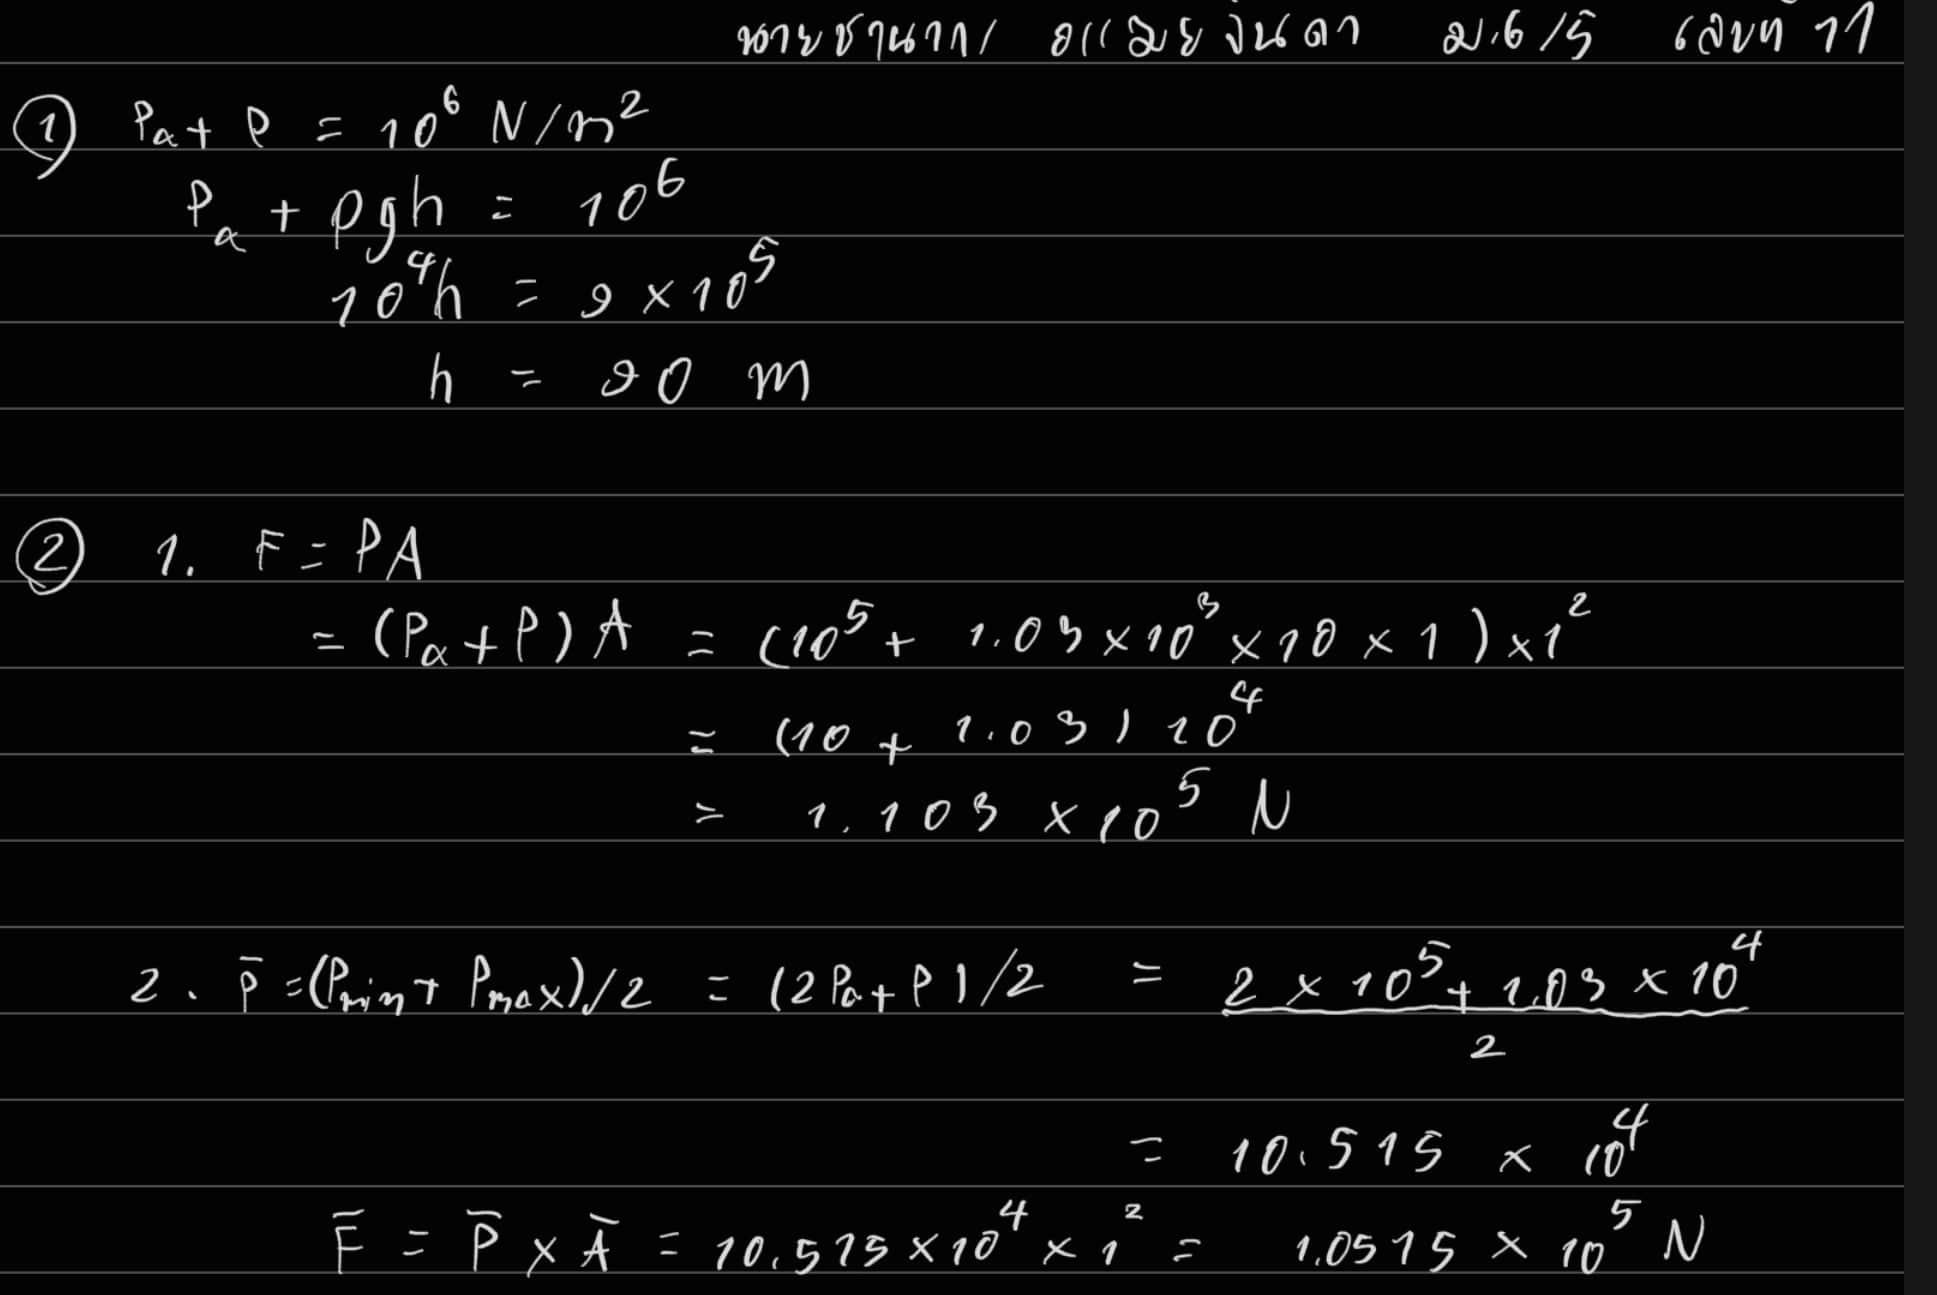 นายชานาท ม.6/5 เลขที่ 11
① Pa + P = 10⁶ N/m²
Pa + ρgh = 10⁶
10⁴h = 9 × 10⁵
h = 90 m
② 1. F = PA
= (Pa + P) A = (10⁵ + 1.03 × 10³ × 10 × 1) × 1²
= (10 + 1.03) 10⁴
= 1.103 × 10⁵ N
2. P̄ = (Pmin + Pmax)/2 = (2Pa + P)/2 = (2 × 10⁵ + 1.03 × 10⁴)/2
= 10.515 × 10⁴
F̄ = P̄ × Ā = 10.515 × 10⁴ × 1² = 1.0515 × 10⁵ N